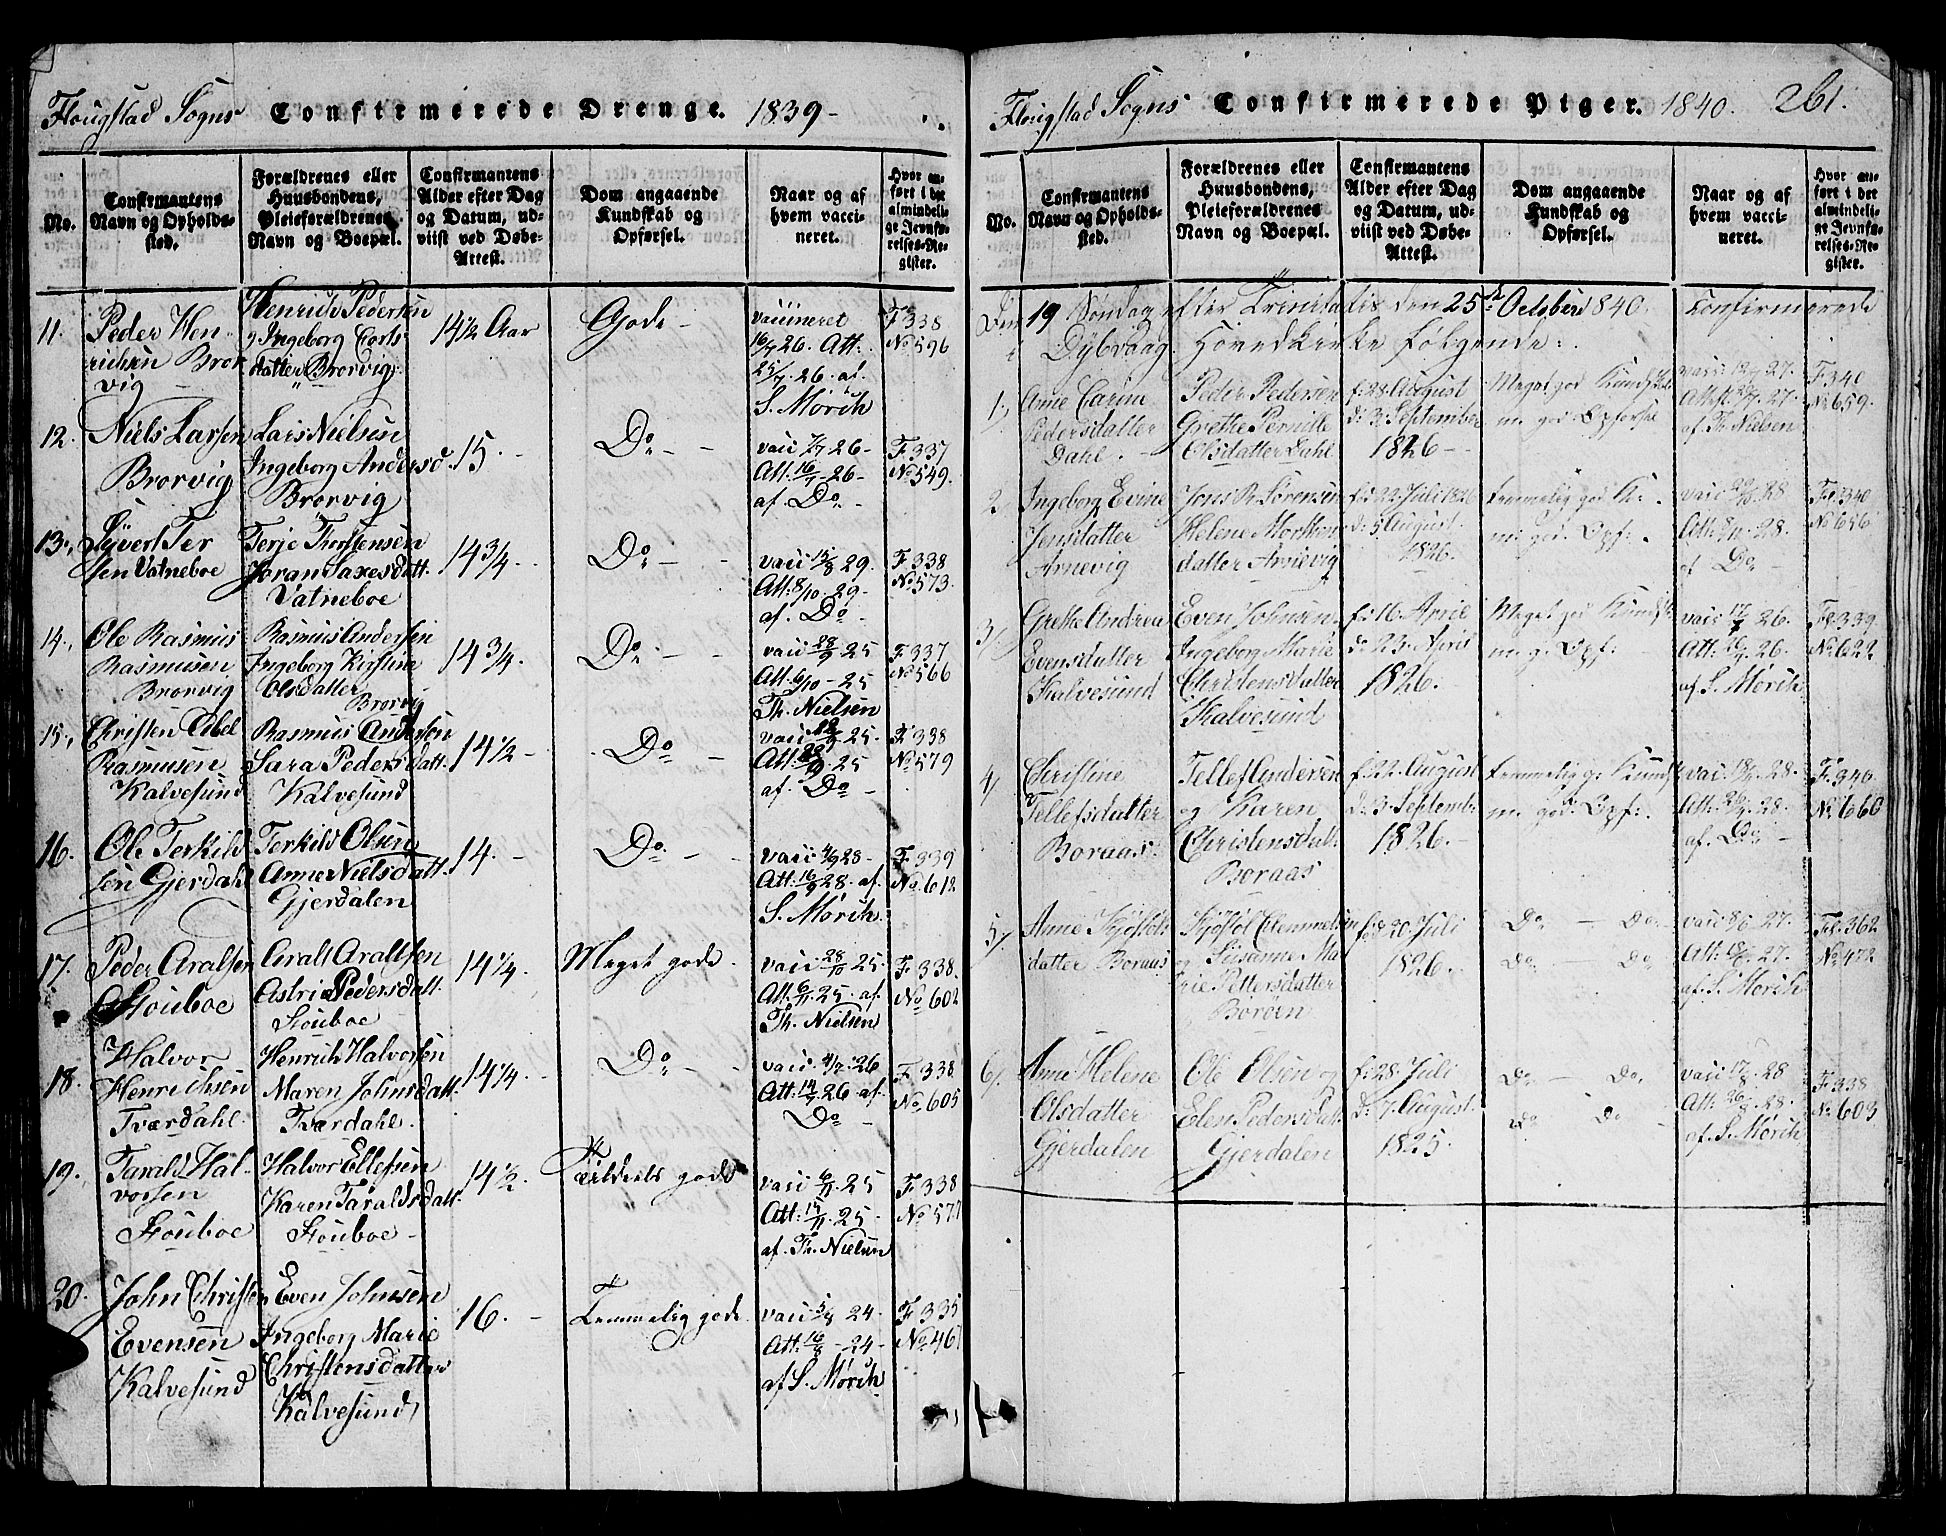 Flougstad Sogns Confirmerede Drenge. 1839-
No.
Confirmantens Navn og Opholds-sted.
Forældrenes eller Huusbondens, Pleieforældrenes Navn og Boepæl.
Confirmantens Alder efter Dag og Datum, ud-viist ved Døbe-Attest.
Dom angaaende Kundskab og Opførsel.
Naar og af hvem vacci-neret.
Hvor an-ført i det almindeli-ge Jevnfø-relses-Re-gister.
11. Peder Hen
richsen Bror
vig
Henrich Pedersen
og Ingeborg Carls
datter Brorvig
14 1/2 Aar
Gode -
vaccineret
16/7 26. Att:
25/7. 26. af.
S. Mörch
F. 338
No 596
12. Niels Larsen
Brorvig
Lars Nielsen
Ingeborg Andersd.
Brorvig
15. -
Do - -
vacc 7/7 26-
Att: 16/7 - 26-
af. Do -
F. 337
No 549.
13. Syvert Ter
sen Vatneboe
Terje Thorstensen
Joran Saxesdatt.
Vatneboe
14 3/4.
Do - -
vacc 15/8 29.
Att: 8/10 - 29-
af. Do
F. 338
No 573.
14. Ole Rasmus
Rasmusen
Brorvig
Rasmus Andersen
Ingeborg Kirstine
Olsdatter
Brorvig
14 3/4.
Do - -
vacc 28/9 25
Att. 6/10 - 25
Th. Nielsen
F. 337
No 566
15. Christen Abel
Rasmusen
Kalvesund
Rasmus Andersen
Sara Pedersdatt.
Kalvesund
14 1/2 -
Do -
25.
25
af. Do -
F. 338
No 579
16. Ole Terkild
sen Gjerdahl
Terkild Olsen
Anne Nielsdatt.
Gjerdalen
14. -
Do - -
vacc 4/9 28-
Att. 16/9 28. af.
S. Mörch
F. 339
No 612
17. Peder Aralsen
Skouboe
Aralt Araltsen
Astri Pedersdatt.
Skouboe
14 1/4.
Meget gode.
vacc 28/10 25.
Att. 6/11. 25. af.
Th. Nielsen
F. 338.
No 602
18. Halvor
Henrichsen
Tværdahl.
Henrich Halvorsen
Maren Johnsdatt.
Tværdahl.
14 1/4.
Do - -
vacc 4/7. 26
Att. 14/7 26 af.
Do -
F. 338
No 605
19. Tarald Hal-
vorsen
Skouboe
Halvor Ellefsen
Karen Taraldsdatt.
Skouboe -
14 1/2.
Tildeels gode
vacc 6/11. 25
Att: 15/11. 25 -
af. Th. Nielsen
F. 338
20. John Christen
Evensen
Kalvesund
Even Johnsen
Ingeborg Marie
Christensdatter
Kalvesund
16. -
Temmelig gode.
vacc 5/8 24-
Att. 16/8 - 24-
af S. Mörch
F. 335
Flougstad Sogns Confirmerede Piger. 1840. 261.
No.
Confirmantens Navn og Opholds-sted.
Forældrenes eller Huusbondens, Pleieforældrenes Navn og Boepæl.
Confirmantens Alder efter Dag og Datum, ud-viist ved Døbe-Attest.
Dom angaaende Kundskab og Opførsel.
Naar og af hvem vacci-neret.
Hvor an-ført i det almindeli-ge Jevnfø-relses-Re-gister.
Den 19 Søndag efter Trinitatis den 25de October 1840. Confirmerede
i Dybvaag Hovedkirke følgende:
1. Anne Carine
Pedersdatter
Dahl.
Peder Pedersen
Grethe Pernille
Olsdatter Dahl
f. 28. August
d: 3. September
1826-
Meget god Kundskab
m. god Opførsel
vacc 12/7 27.
Att: 27.
af Th. Nielsen
F. 340
No 659.
2. Ingeborg Evine
Jensdatter
Arnevig
Jens R. Sørensen
Helene Morthens
datter Arnevig
f: 22 Juli 1826
d: 5 August.
1826.
temmelig god K.
m: god. Opf: -
28
28.
af Do -
F. 340
No 656
3. Grethe Andrea
Evensdatter
Kalvesund
Even Johnsen
Ingeborg Marie
Christensdatter
Kalvesund
f: 16 April
d: 23 April
1826.
Meget god Kundsk.
m. g. Opf: -
26.
Att: 26.
af S. Mörch
F. 339.
No 622
4. Christine
Tellefsdatter
Boraas.
Tellef Andersen
og Karen
Christensdatt.
Boraas
f: 22. August
d: 3. Septembr
1826.
temmelig g: Kundsk.
m. god: Opf:.
vacc 18/7. 28.
Att. 26/7. 28.
af. Do -
F. 340.
No 660
5. Anne Kjøstöls
datter Boraas
Kjøstöl Clemmetsen
og Susanne Ma
rie Pettersdatter
Boröen
f: 20 Juli
1826.
Do - Do
Do - Do
vacc 8/6. 27.
Att: 18/6. 27.
af. S. Mörch
F. 362
No 472
6. Anne Helene
Olsdatter
Gjerdalen
Ole Olsen og
Elen Pedersdatt.
Gjerdalen
f: 28. Juli
d: 7. August.
1825.
Do - Do.
Do Do
vacc 17/8. 28
Att: 26/8. 28.
af S. Mörch
F. 338
No 603